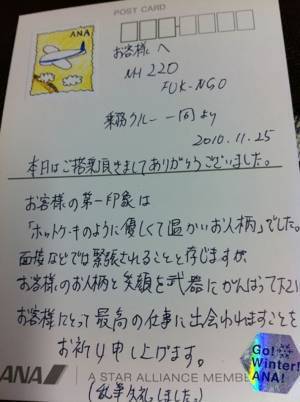 POST CARD
ANA
お客様へ
NH 220
FUK-NGO
乗務クルー 一同より
2010.11.25
本日はご搭乗頂きましてありがとうございました。
お客様の第一印象は
「ホットケーキのように優しくて温かいお人柄」でした。
面接などでは緊張されることと存じますが
お客様のお人柄と笑顔を武器にがんばって下さい
お客様にとって最高の仕事に出会われますことを
お祈り申し上げます。
(乱筆失礼しました。)
ANA
A STAR ALLIANCE MEMBER
Go!
Winter!
ANA!